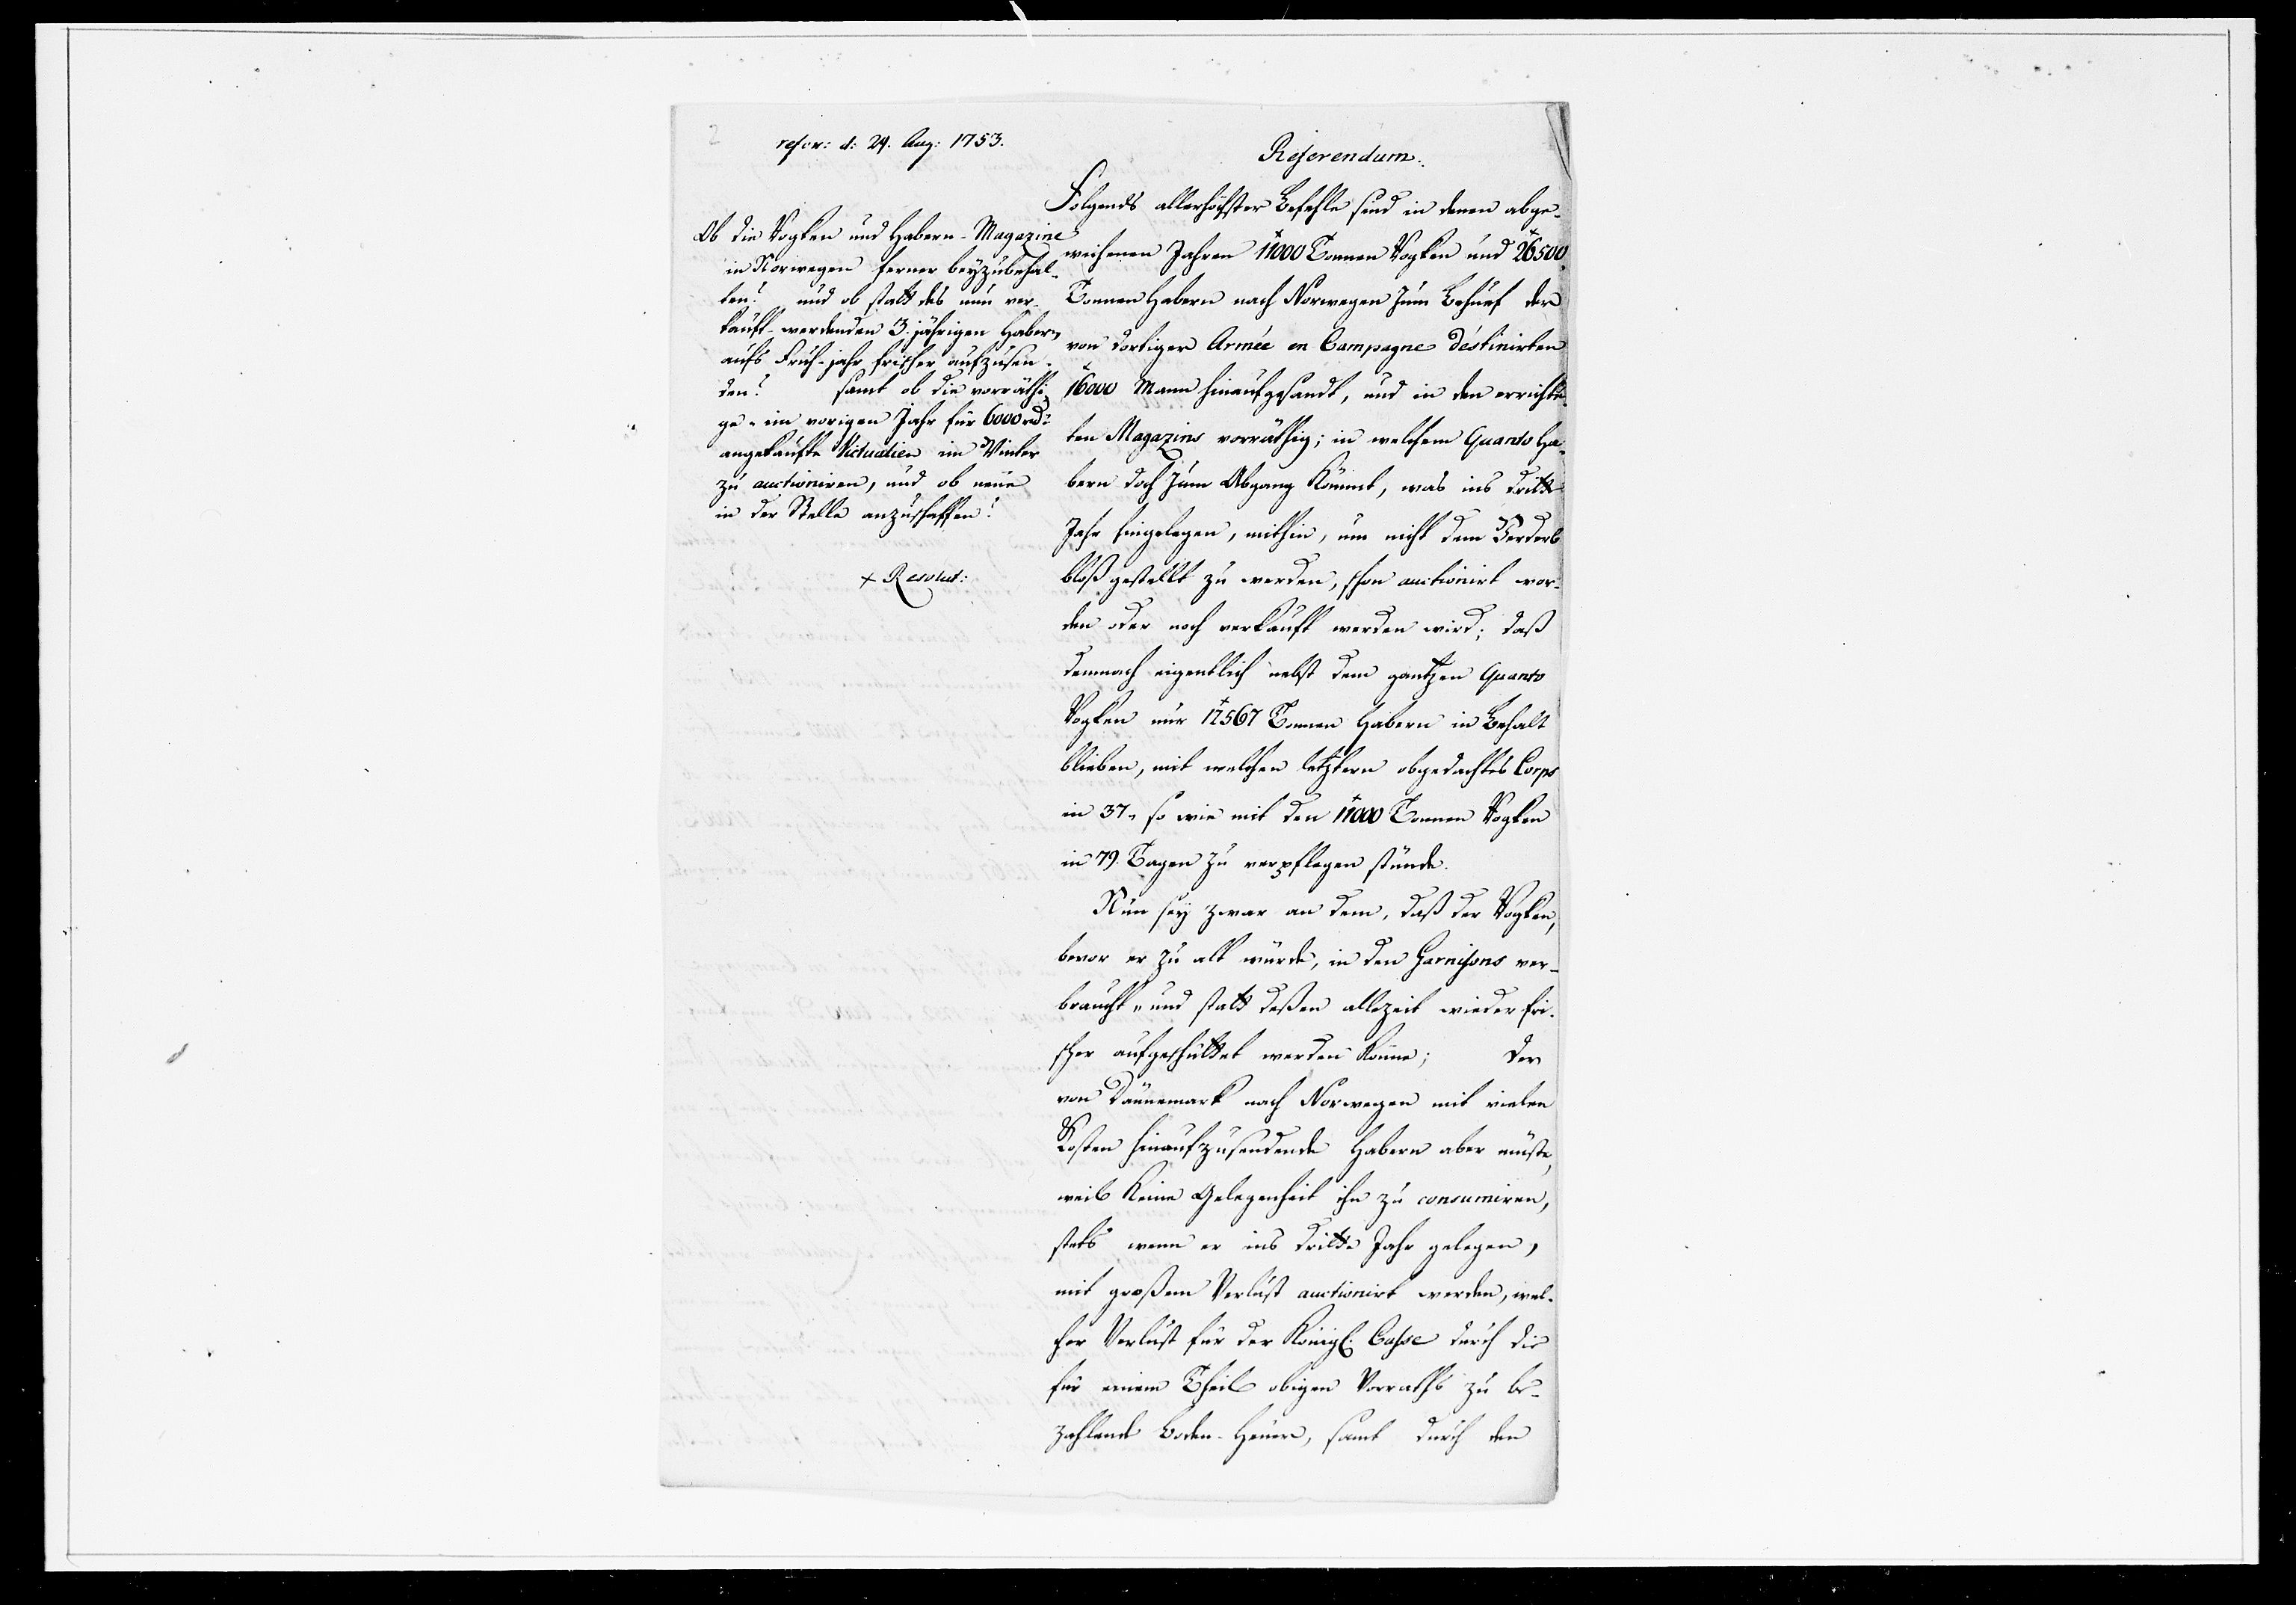 2
refer: d: 24. Aug: 1753.
Ob die Rogken und Habern-Magazine
in Norwegen ferner beyzubehal-
ten? und ob statt des nun ver-
kauft-werdenden 3. jährigen Habern
aufs Früh-jahr frischer aufzusen-
den? samt ob die vorräthi-
ge- im vorigen Jahr für 6000 rd:
angekaufte Victualien im Winter
zu auctioniren, und ob neue
in der Stelle anzuschaffen?
+ Resolut:
Referendum.
Folgends allerhöchster Befehle sind in denen abge-
wichenen Jahren 11000 Tonnen Rogken und 26500
Tonnen Habern nach Norwegen zum Behuef der
von dortiger Armée en Campagne déstinirten
16000 Mann hinaufgesandt, und in den errichte-
ten Magazins vorräthig; in welchem Quanto Ha-
bern doch zum Abgang kömmt, was ins dritte
Jahr hingelegen, mithin, um nicht dem Verderb
bloß gestellt zu werden, schon auctionirt wor-
den oder noch verkauft werden wird; daß
demnach eigentlich nebst dem gantzen Quanto
Rogken nur 17567 Tonnen Habern in Behalt
blieben, mit welchen letztern obgedachtes Corps
in 37- so wie mit den 11000 Tonnen Rogken
in 79. Tagen zu verpflegen stünde.
Nun sey zwar an dem, daß der Rogken,
bevor er zu alt würde, in den Garnisons ver-
braucht- und statt deßen allezeit wieder fri-
scher aufgeschüttet werden könne; der
von Dännemark nach Norwegen mit vielen
Kosten hinaufzusendende Habern aber müste,
weil keine Gelegenheit ihn zu consumiren,
stets wenn er ins dritte Jahr gelegen,
mit großem Verlust auctionirt werden, wel-
cher Verlust für der Königl: Casse durch die
für einem Theil obigen Vorraths zu be-
zahlende Boden-Heuer, samt durch den